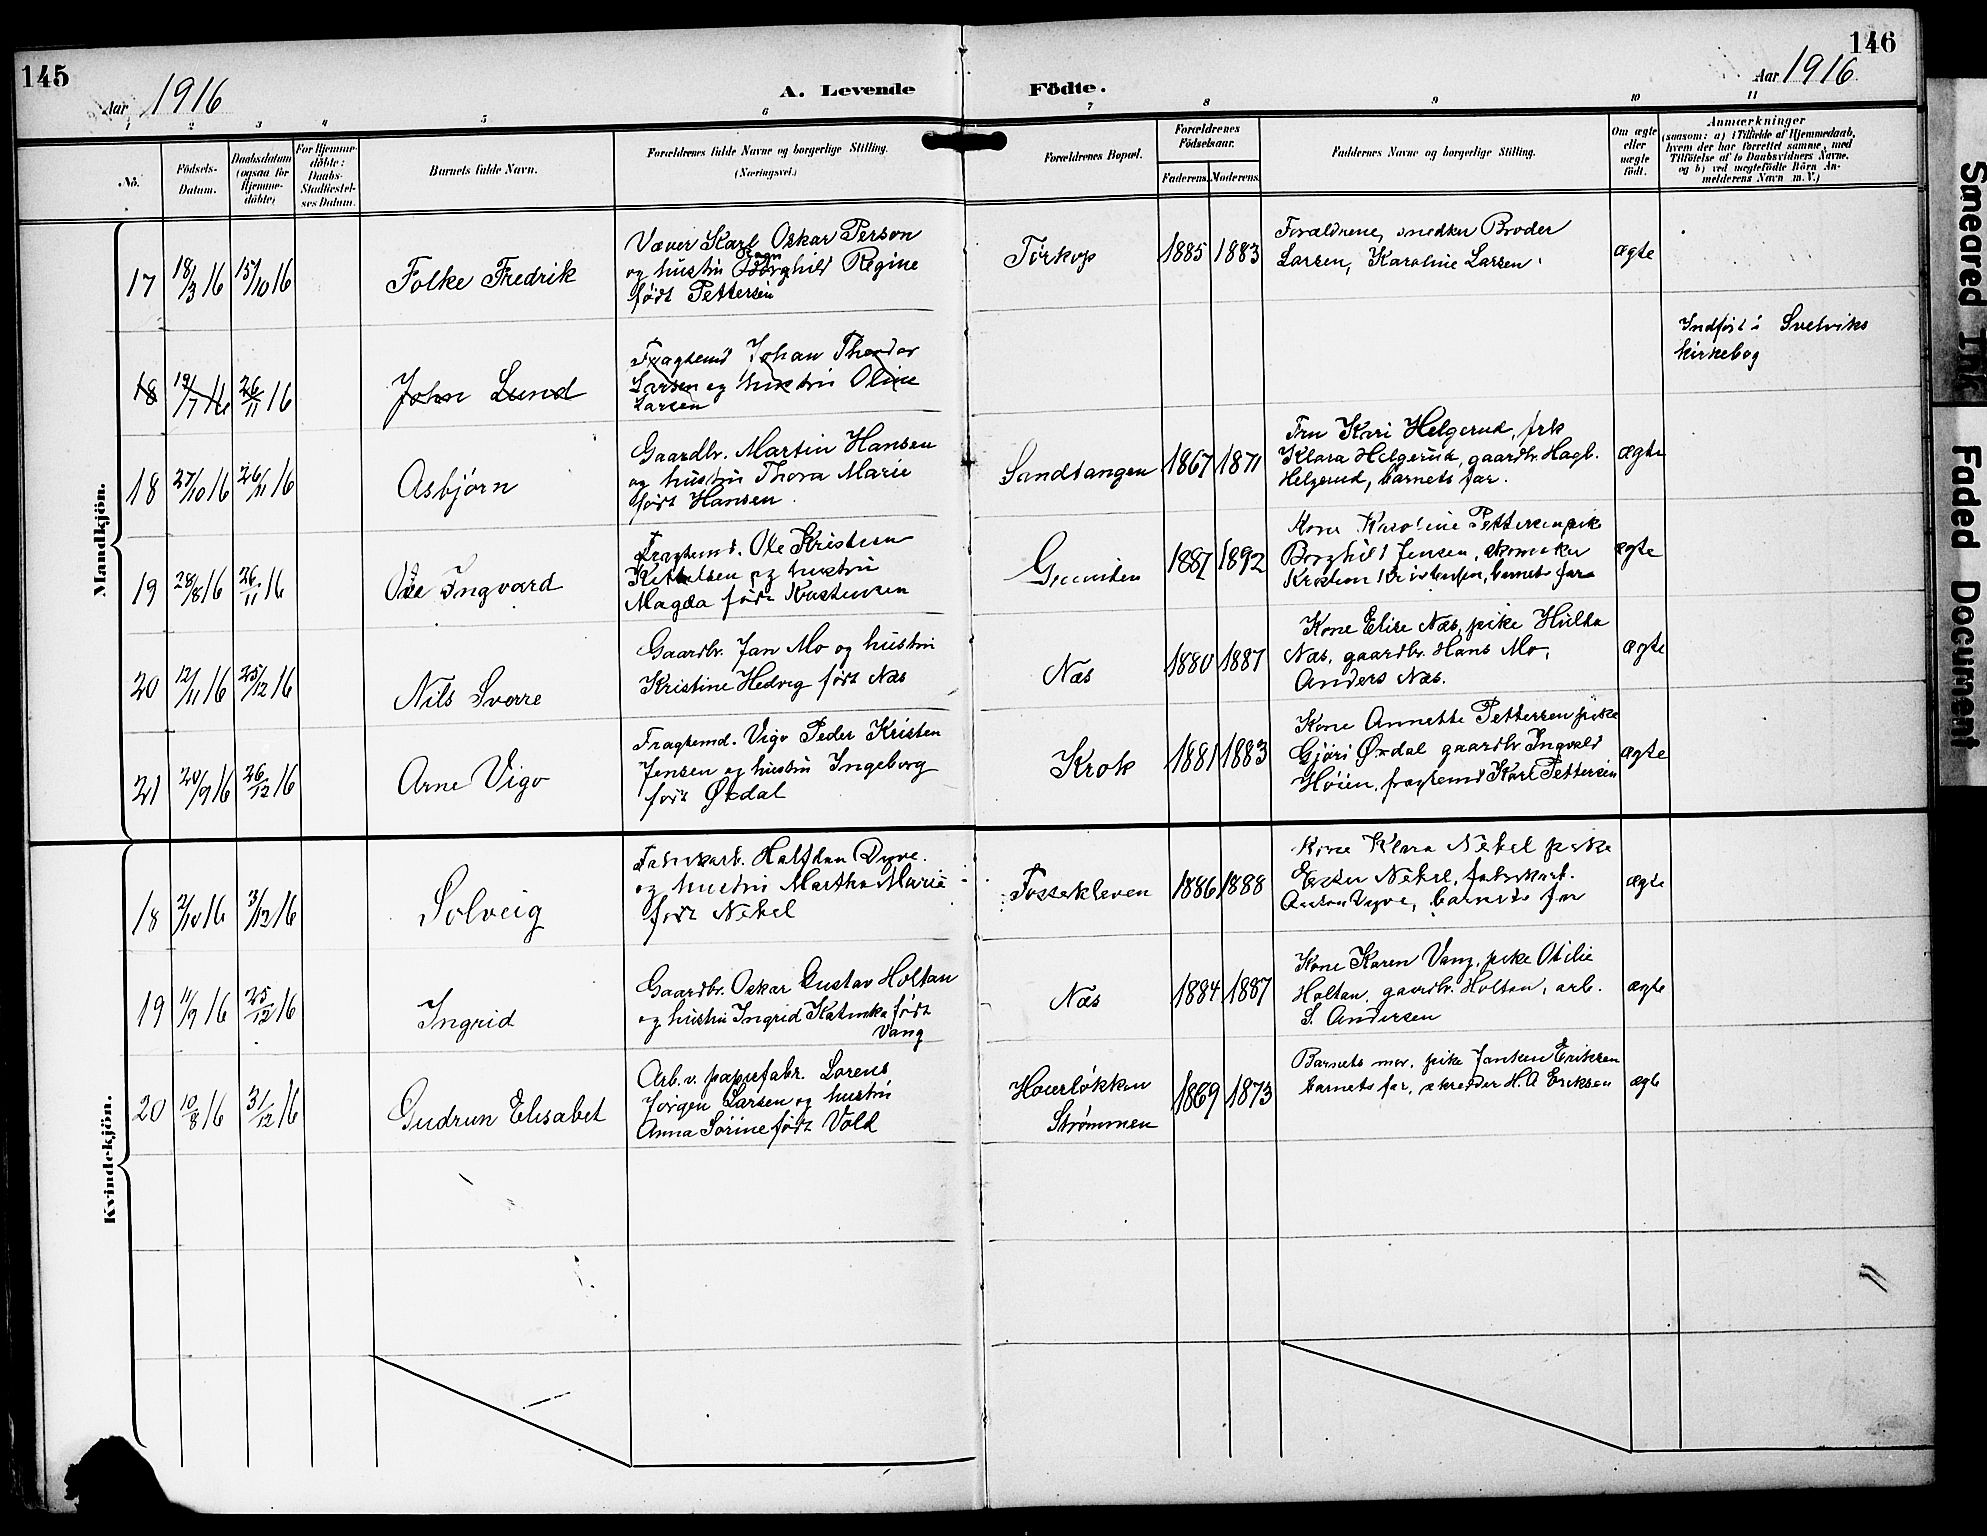 145
Aar 1916
A. Levende
Födte.
Aar 1916
146
1 2 3 4 5 6 7 8 9 10 11
No.
Födsels-
Datum.
Daabsdatum
(ogsaa for
Hjemme-
döbte)
For Hjemme-
döbte:
Daabs-
Stadfæstel-
ses Datum.
Barnets fulde Navn.
Forældrenes fulde Navne og borgerlige Stilling.
(Næringsvei.)
Forældrenes Bopæl.
Forældrenes
Födselsaar.
Faderens.
Moderens.
Faddernes Navne og borgerlige Stilling.
Om ægte
eller
uægte
født.
Anmærkninger
(saasom: a) i Tilfælde af Hjemmedaab,
hvem der har forrettet samme, med
Tilföielse af to Daabsvidners Navne,
og b) ved uægtefödte Börn An-
melderens Navn m. V.)
Mandkjön.
17
18/3 16
15/10 16
Folke Fredrik
Væver Karl Oskar Person
og hustru Borghild Regine
født Pettersen
Tørkop
1885
1883
Forældrene, snedker Broder
Larsen, Karoline Larsen
ægte
18
19/7 16
26/11 16
John Lund
Fragtemd Johan Theodor
Larsen og hustru Oline
Larsen
Indført i Svelviks
kirkebog
18
27/10 16
26/11 16
Asbjørn
Gaardbr. Martin Hansen
og hustru Thora Marie
født Hansen
Sandtangen
1867
1871
Fru Kari Helgerud, frk
Klara Helgerud, gaardbr. Hagb.
Helgerud, barnets far.
ægte
19
28/8 16
26/11 16
Ole Ingvard
Fragtemd. Ole Kristian
Kittelsen og hustru
Magda født
1892
Kone Karoline Pettersen, pik
Borghild Jensen, skomaker
barnets far
ægte
20
12/11 16
25/12 16
Nils Sverre
Gaardbr. Jan Mo og hustru
Kristine Hedvig født Næs
Næs
1880
1887
Kone Elise Næs, pike Hulda
Næs, gaardbr. Hans Mo,
Anders Næs.
ægte
21
20/9 16
26/12 16
Arne Vigo
Fragtemd. Vigo Peder Kristen
Jensen og hustru Ingeborg
født Økdal
Krok
1881
1883
Kone Annette Pettersen pike
Gjøri Økdal gaardbr Ingvald
Høien, fragtemd Karl Pettersen
ægte
Kvindekjön.
18
2/10 16
3/12 16
Solveig
Fabrikarb. Halfdan Dyve.
og hustru Martha Marie
født Nebel
Fossekleven
1886
1888
Kone Klara Nebel pike
Ester Nebel, fabrikarb.
Dyve, barnets far
ægte
19
11/9 16
25/12 16
Ingrid
Gaardbr. Oskar Gustav Holtan
og hustru Ingrid Katinka født
Vang
Næs
1884
1887
Kone Karen Vang, pike Otilie
Holtan, gaardbr. Holtan, arb.
S. Andersen
ægte
20
10/8 16
31/12 16
Gudrun Elisabet
Arb. v. papirfabr. Lorens
Jørgen Larsen og hustru
Anna Sorine født Vold
Houerløkken
Strømmen
1869
1873
Barnets mor, pike Eriksen
barnets far, skredder H. A Eriksen
ægte
Smeared Ink
Faded Document